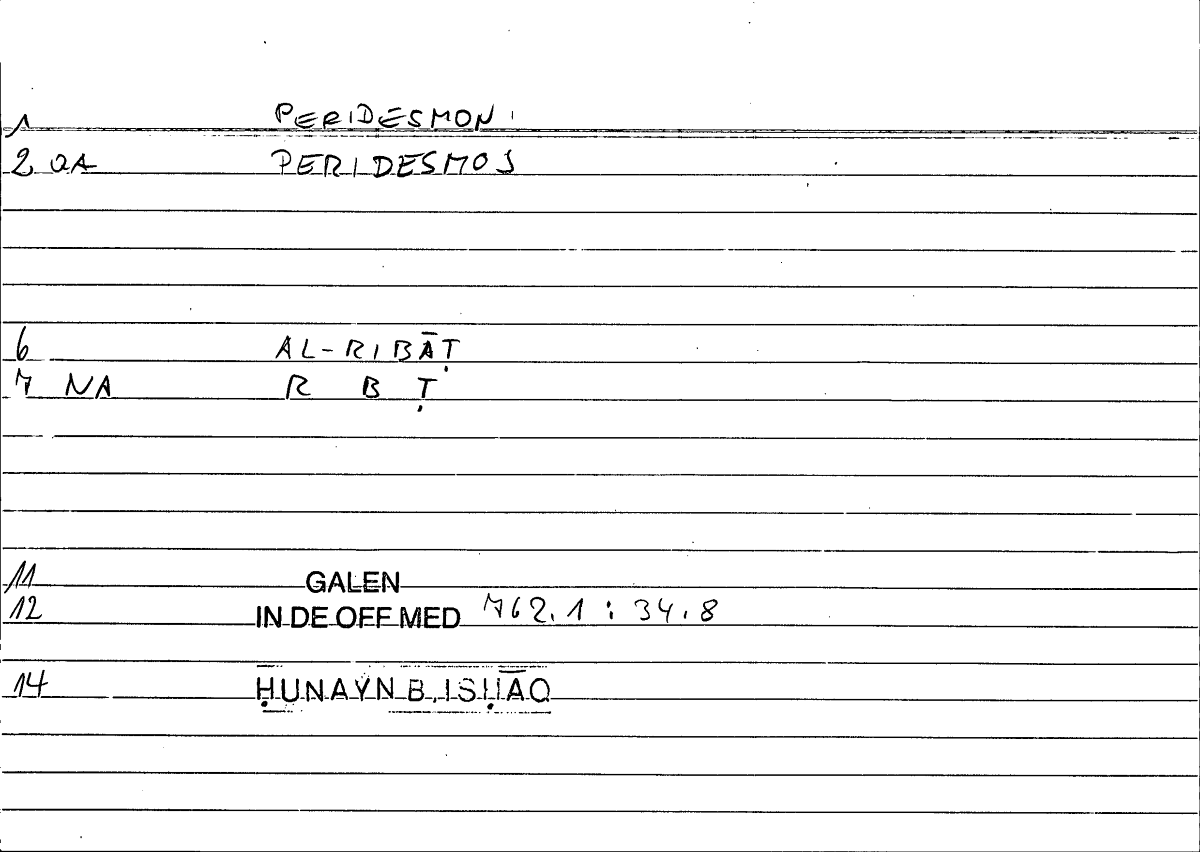 1 PERIDESMON
2 QA PERIDESMOS
6 AL-RIBĀṬ
7 NA R B Ṭ
11 GALEN
12 IN DE OFF MED 762.1 : 34.8
14 ḤUNAYN B. ISḤĀQ